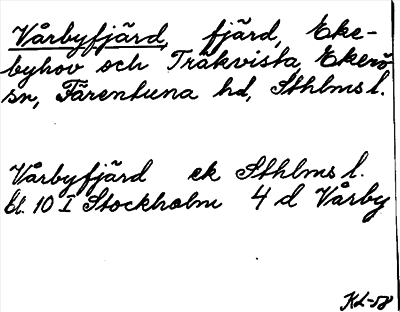 Vårbyfjärd, fjärd, Eke-
byhov och Träkvista, Ekerö
sn, Färentuna hd, Sthlms l.
Vårbyfjärd ek Sthlms l.
bl. 10 I Stockholm 4 d Vårby
KL-58